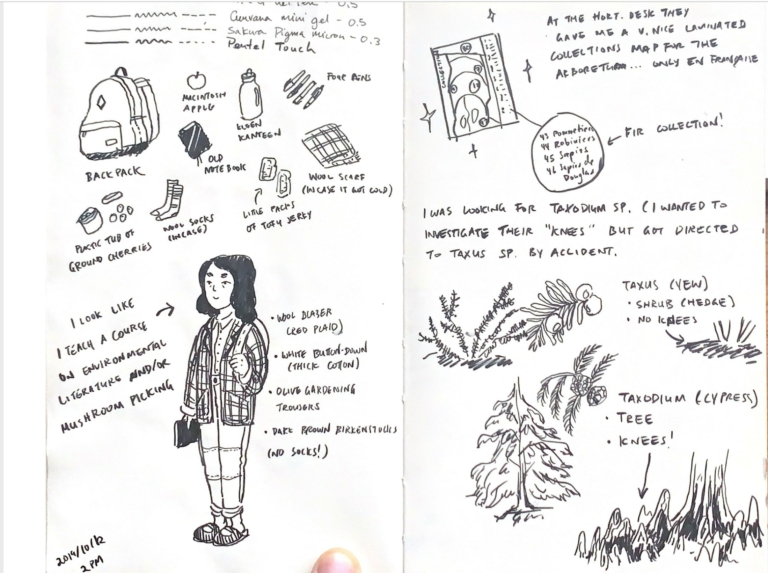 0.5
mini gel - 0.5
Sakura Pigma micron - 0.3
Pentel Touch
BACKPACK
MACINTOSH
APPLE
KLEEN
KANTEEN
FOUR PENS
OLD
NOTEBOOK
WOOL SCARF
(IN CASE IT GOT COLD)
PLASTIC TUB OF
GROUND CHERRIES
WOOL SOCKS
(IN CASE)
LITTLE PACKS
OF TOFU JERKY
I LOOK LIKE
I TEACH A COURSE
ON ENVIRONMENTAL
LITERATURE AND/OR
MUSHROOM PICKING
• WOOL BLAZER
(RED PLAID)
• WHITE BUTTON-DOWN
(THICK COTTON)
• OLIVE GARDENING
TROUSERS
• DARK BROWN BIRKENSTOCKS
(NO SOCKS!)
2014/10/12
2 PM
AT THE HORT. DESK THEY
GAVE ME A V. NICE LAMINATED
COLLECTIONS MAP FOR THE
ARBORETUM... ONLY EN FRANÇAISE
43 Pommetiers
44 Robiniers
45 Sapins
46 Sapins de
Douglas
FIR COLLECTION!
I WAS LOOKING FOR TAXODIUM SP. (I WANTED TO
INVESTIGATE THEIR "KNEES" BUT GOT DIRECTED
TO TAXUS SP. BY ACCIDENT.
TAXUS (YEW)
• SHRUB (HEDGE)
• NO KNEES
TAXODIUM (CYPRESS)
• TREE
• KNEES!